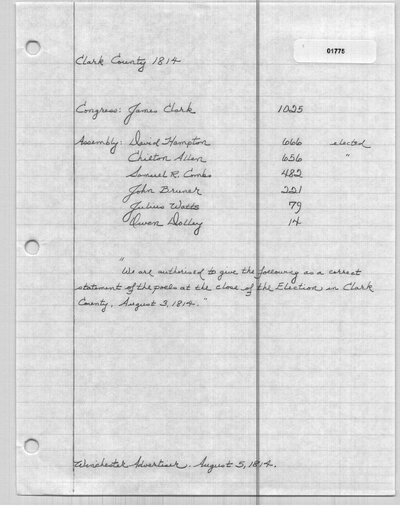 01775
Clark County 1814
Congress: James Clark 1025
Assembly: David Hampton 666 elected
Chilton Allen 656 "
Samuel R. Combs 482
John Bruner 221
Julius Watts 79
Owen Dolley 14
"We are authorised to give the following as a correct
statement of the poels at the close of the Election in Clark
County, August 3, 1814."
Winchester Advertiser. August 5, 1814.